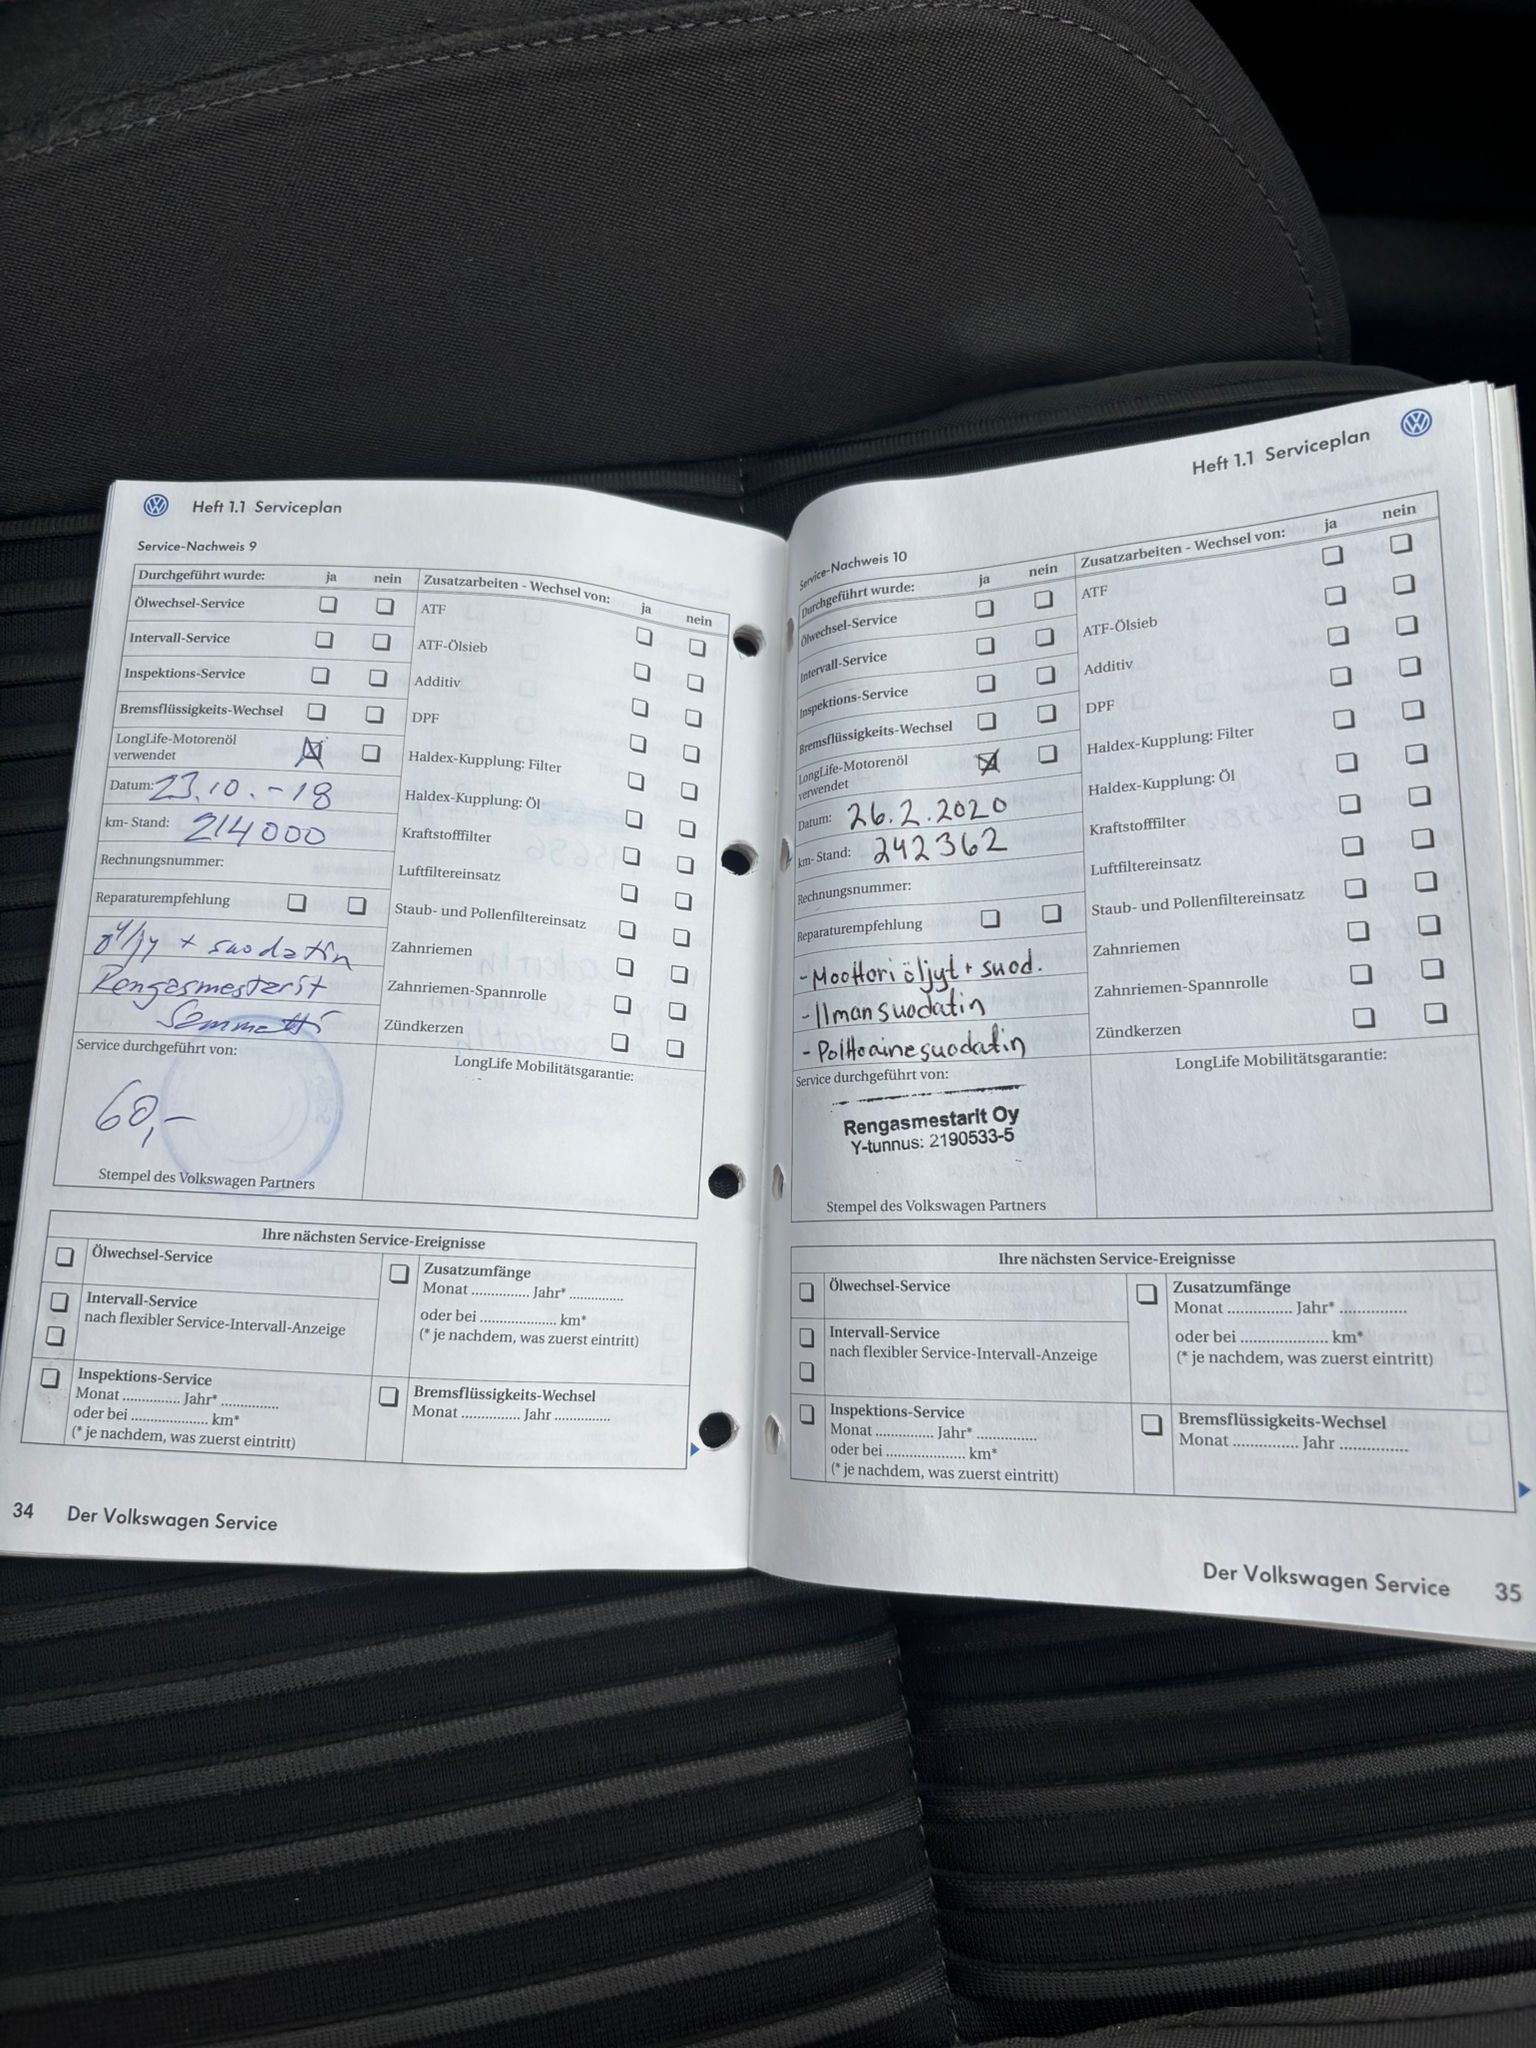 Heft 1.1 Serviceplan
Service-Nachweis 9
Durchgeführt wurde: ja nein
Ölwechsel-Service
Intervall-Service
Inspektions-Service
Bremsflüssigkeits-Wechsel
LongLife-Motorenöl
verwendet
Datum: 23.10.-18
km- Stand: 214000
Rechnungsnummer:
Reparaturempfehlung
öljy + suodatin
Rengasmestarit
Service durchgeführt von:
60,-
Stempel des Volkswagen Partners
Zusatzarbeiten - Wechsel von: ja nein
ATF
ATF-Ölsieb
Additiv
DPF
Haldex-Kupplung: Filter
Haldex-Kupplung: Öl
Kraftstofffilter
Luftfiltereinsatz
Staub- und Pollenfiltereinsatz
Zahnriemen
Zahnriemen-Spannrolle
Zündkerzen
LongLife Mobilitätsgarantie:
Ihre nächsten Service-Ereignisse
Ölwechsel-Service
Intervall-Service
nach flexibler Service-Intervall-Anzeige
Inspektions-Service
Monat ............... Jahr* ...............
oder bei .................... km*
(* je nachdem, was zuerst eintritt)
Zusatzumfänge
Monat ............... Jahr* ..............
oder bei .................... km*
(* je nachdem, was zuerst eintritt)
Bremsflüssigkeits-Wechsel
Monat ............... Jahr ..............
34 Der Volkswagen Service
Heft 1.1 Serviceplan
Service-Nachweis 10
Durchgeführt wurde: ja nein
Ölwechsel-Service
Intervall-Service
Inspektions-Service
Bremsflüssigkeits-Wechsel
LongLife-Motorenöl
verwendet
Datum: 26.2.2020
km- Stand: 242362
Rechnungsnummer:
Reparaturempfehlung
- Moottoriöljyt + suod.
- Ilmansuodatin
- Polttoainesuodatin
Service durchgeführt von:
Rengasmestarit Oy
Y-tunnus: 2190533-5
Stempel des Volkswagen Partners
Zusatzarbeiten - Wechsel von: ja nein
ATF
ATF-Ölsieb
Additiv
DPF
Haldex-Kupplung: Filter
Haldex-Kupplung: Öl
Kraftstofffilter
Luftfiltereinsatz
Staub- und Pollenfiltereinsatz
Zahnriemen
Zahnriemen-Spannrolle
Zündkerzen
LongLife Mobilitätsgarantie:
Ihre nächsten Service-Ereignisse
Ölwechsel-Service
Intervall-Service
nach flexibler Service-Intervall-Anzeige
Inspektions-Service
Monat ............... Jahr* ...............
oder bei .................... km*
(* je nachdem, was zuerst eintritt)
Zusatzumfänge
Monat ............... Jahr* ...............
oder bei .................... km*
(* je nachdem, was zuerst eintritt)
Bremsflüssigkeits-Wechsel
Monat ............... Jahr ...............
Der Volkswagen Service 35